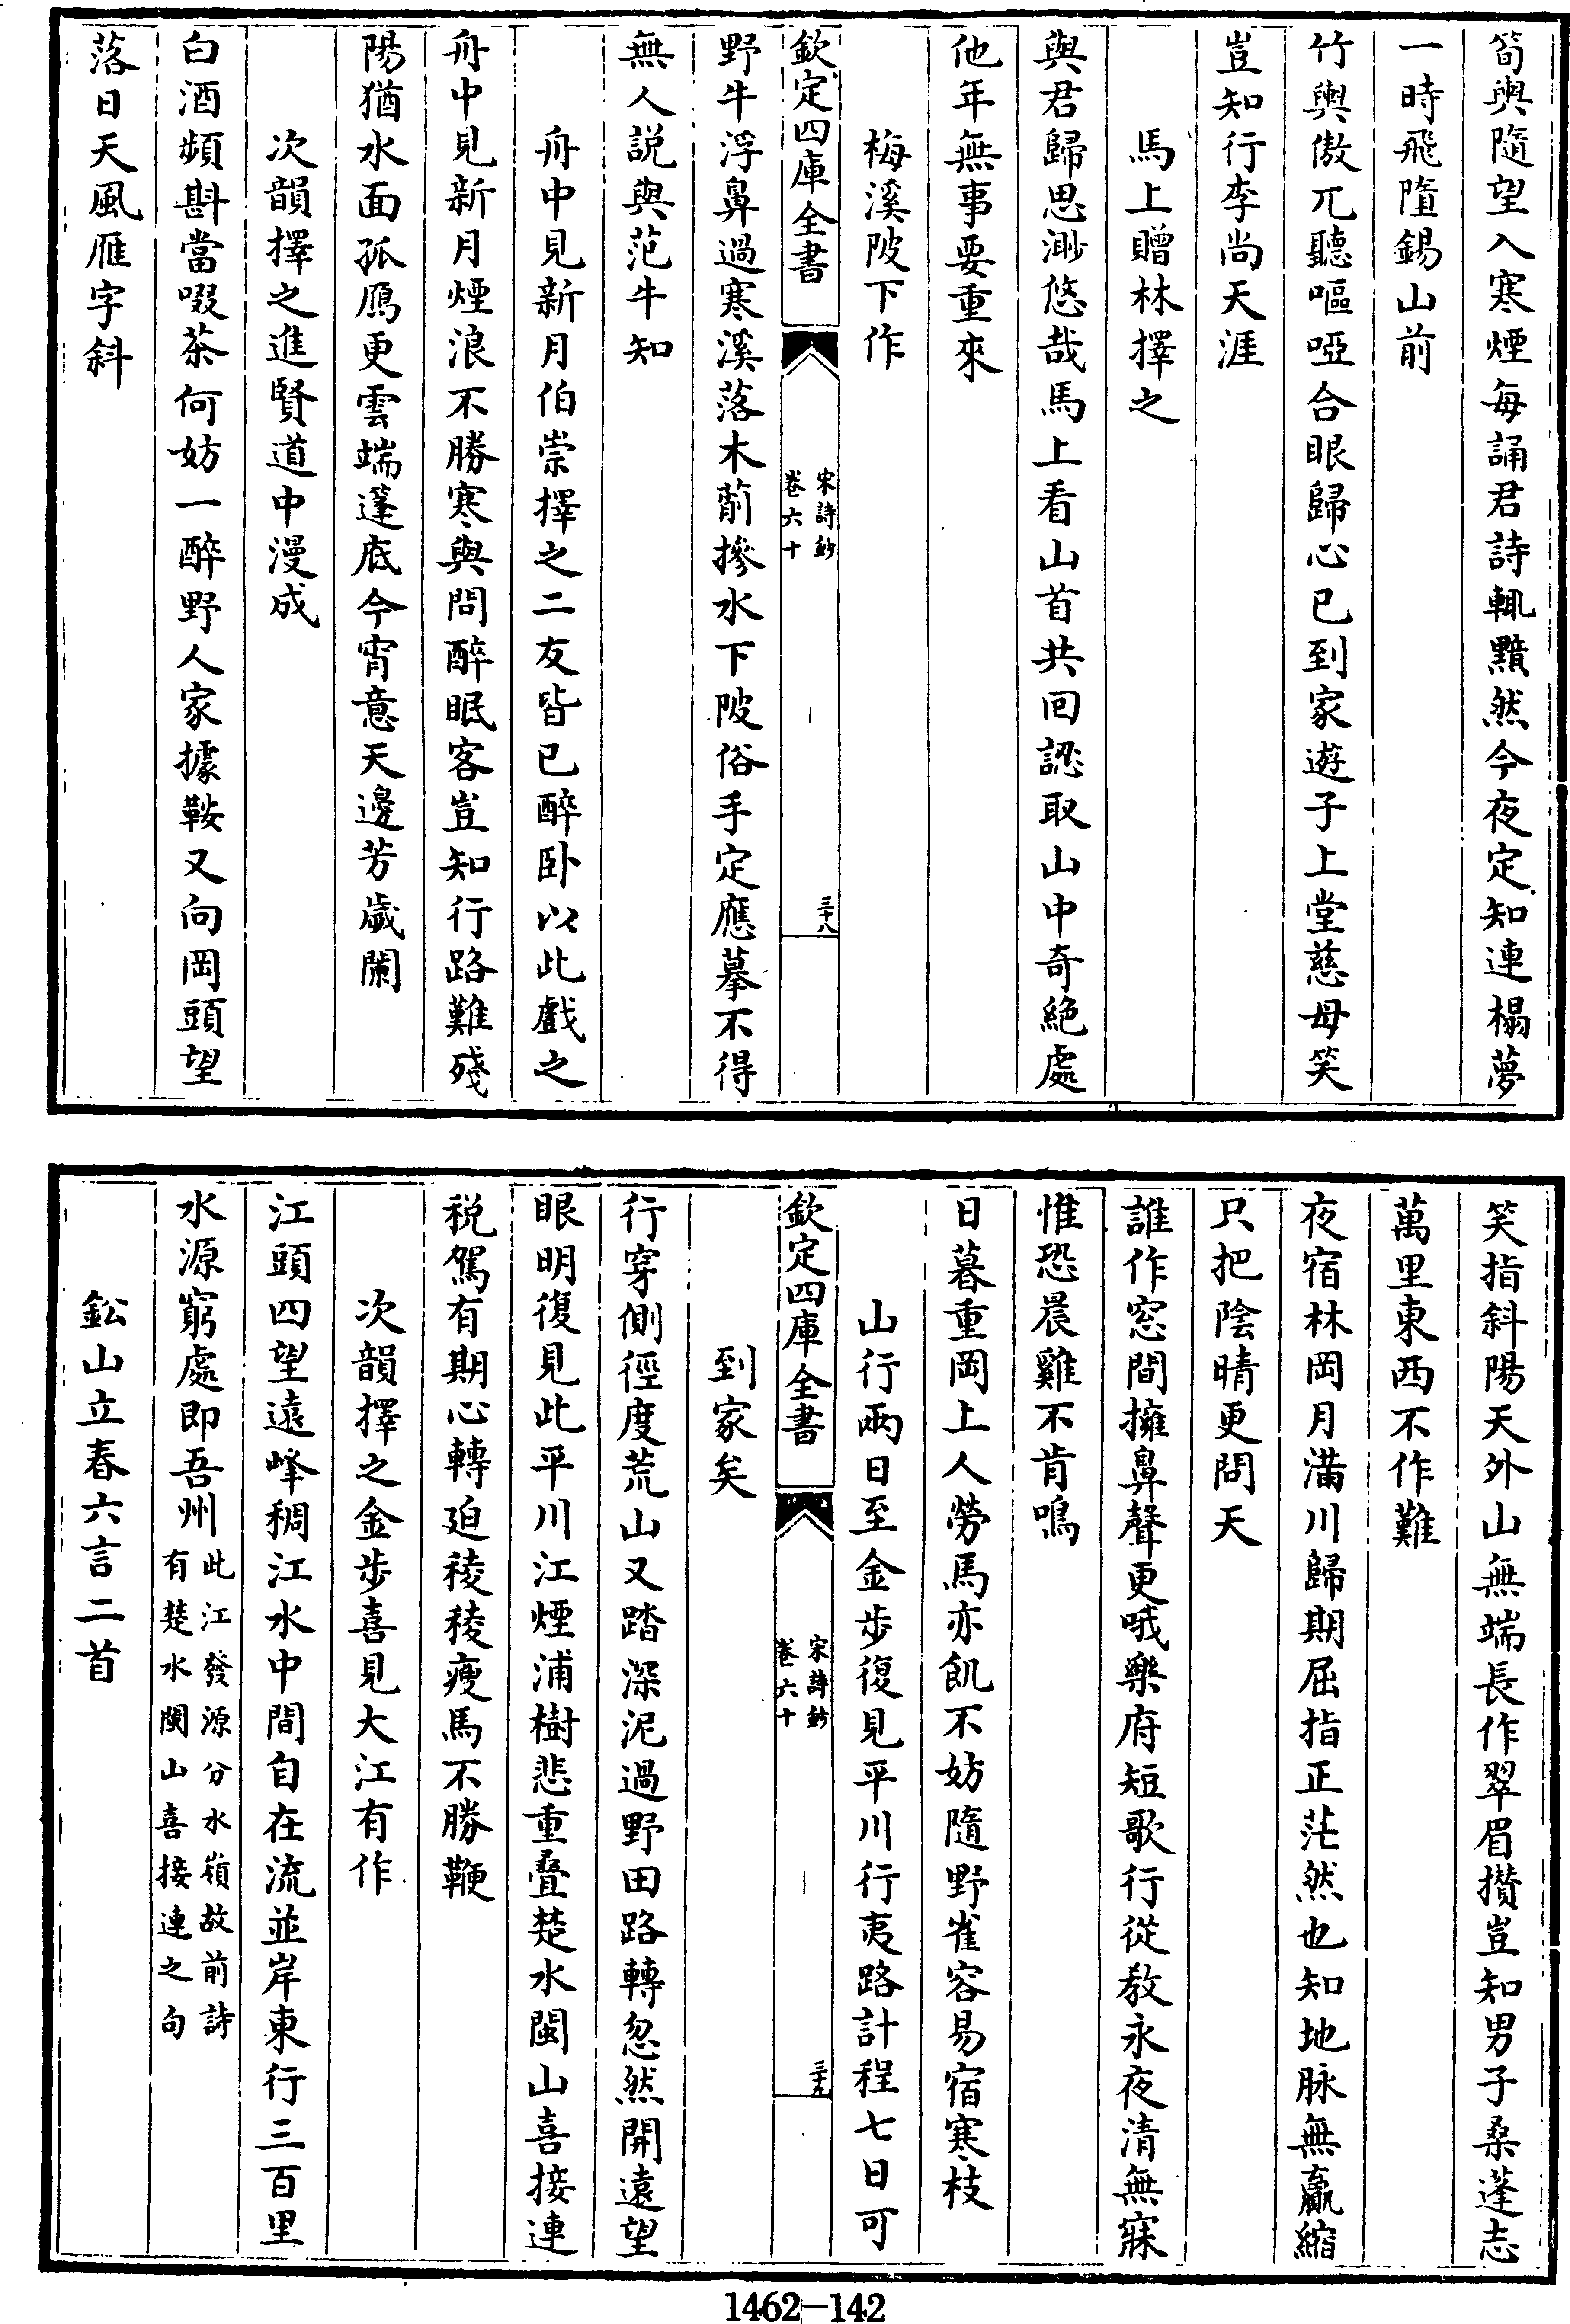 筍輿隨望入寒煙每誦君詩輒黯然今夜定知連榻夢
一時飛墮錫山前
竹輿傲兀聽嘔啞合眼歸心已到家遊子上堂慈母笑
豈知行李尚天涯
馬上贈林擇之
與君歸思渺悠哉馬上看山首共回認取山中奇絶處
他年無事要重來
梅溪陂下作
欽定四庫全書
宋詩鈔
卷六十
三十八
野牛浮鼻過寒溪落木蕭摻水下陂俗手定應摹不得
無人説與范牛知
舟中見新月伯崇擇之二友皆已醉卧以此戲之
舟中見新月煙浪不勝寒與問醉眠客豈知行路難殘
陽猶水面孤鴈更雲端篷底今宵意天邊芳歲闌
次韻擇之進賢道中漫成
白酒頻斟當啜茶何妨一醉野人家據鞍又向岡頭望
落日天風雁字斜
笑指斜陽天外山無端長作翠眉攢豈知男子桑蓬志
萬里東西不作難
夜宿林岡月滿川歸期屈指正茫然也知地脉無贏縮
只把陰晴更問天
誰作窓間擁鼻聲更哦樂府短歌行從教永夜清無寐
惟恐晨雞不肯鳴
日暮重岡上人勞馬亦飢不妨隨野雀容易宿寒枝
山行兩日至金步復見平川行夷路計程七日可
欽定四庫全書
宋詩鈔
卷六十
三十九
到家矣
行穿側徑度荒山又踏深泥過野田路轉忽然開遠望
眼明復見此平川江煙浦樹悲重疊楚水閩山喜接連
税駕有期心轉廹稜稜瘦馬不勝鞭
次韻擇之金步喜見大江有作
江頭四望遠峰稠江水中間自在流並岸東行三百里
水源窮處即吾州此江發源分水嶺故前詩
有楚水閩山喜接連之句
鈆山立春六言二首
1462-142